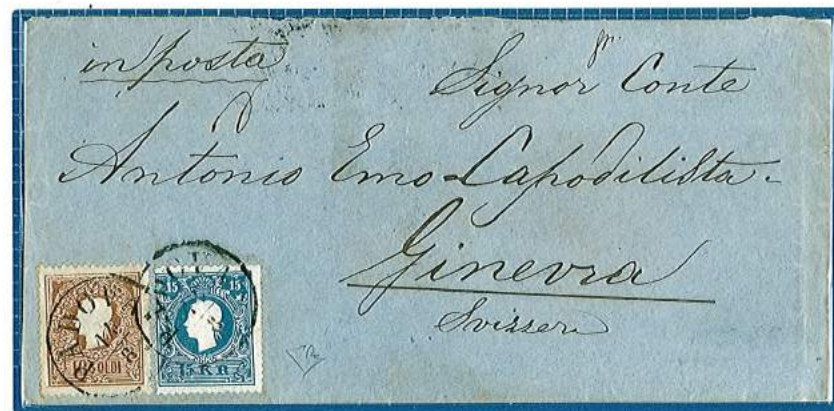 in posta
Signor Conte
Antonio Emo-Capodilista.
Ginevra
Svizzera
PADOVA
15 15
SOLDI 15 KR